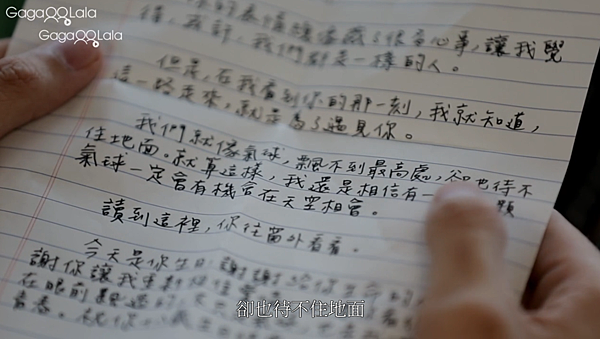 GagaOOLala
GagaOOLala
你的表情總藏
很多心事,讓我覺
得,或許,我們都是一樣的人。
但是,在我看到你的那一刻,我就知道,
這一路走來,就是為了遇見你。
我們就像氣球,飄不到最高處,卻也待不
住地面。就算這樣,我還是相信有一 顆
氣球一定會有機會在天空相會。
讀到這裡,你往窗外看看。
今天是你生日,謝謝
謝你讓我重新相信
在眼前
青春。祝你
卻也待不住地面